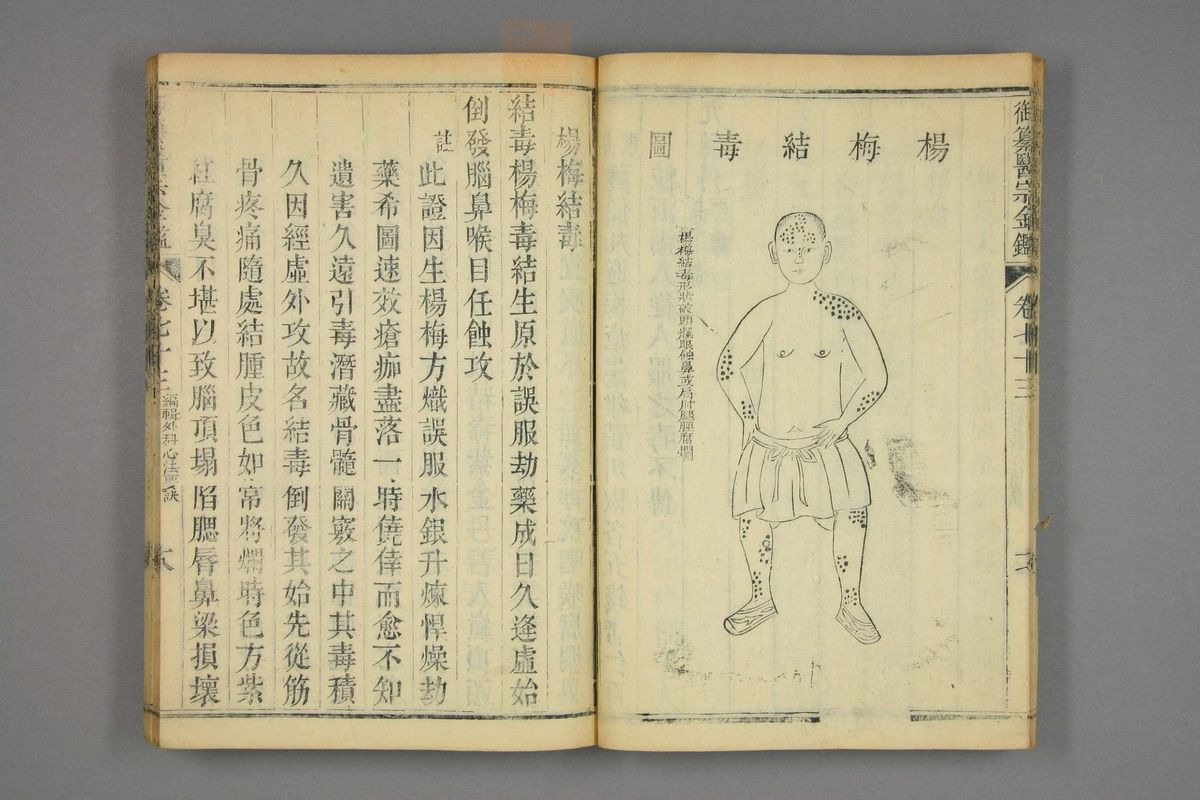 御纂醫宗金鑑
卷七十三
楊梅結毒圖
楊梅結毒形狀破頭爛眼蝕鼻或肩肘腿脛腐爛
楊梅結毒
結毒楊梅毒結生原於誤服劫藥成日久逢虛始
倒發腦鼻喉目任蝕攻
註
此證因生楊梅方熾誤服水銀升煉悍燥劫
藥希圖速效瘡痂盡落一時僥倖而愈不知
遺害久遠引毒潛藏骨髓關竅之中其毒積
久因經虛外攻故名結毒倒發其始先從筋
骨疼痛隨處結腫皮色如常將爛時色方紫
紅腐臭不堪以致腦頂塌陷腮唇鼻梁損壞
卷七十三
編輯外科心法要訣